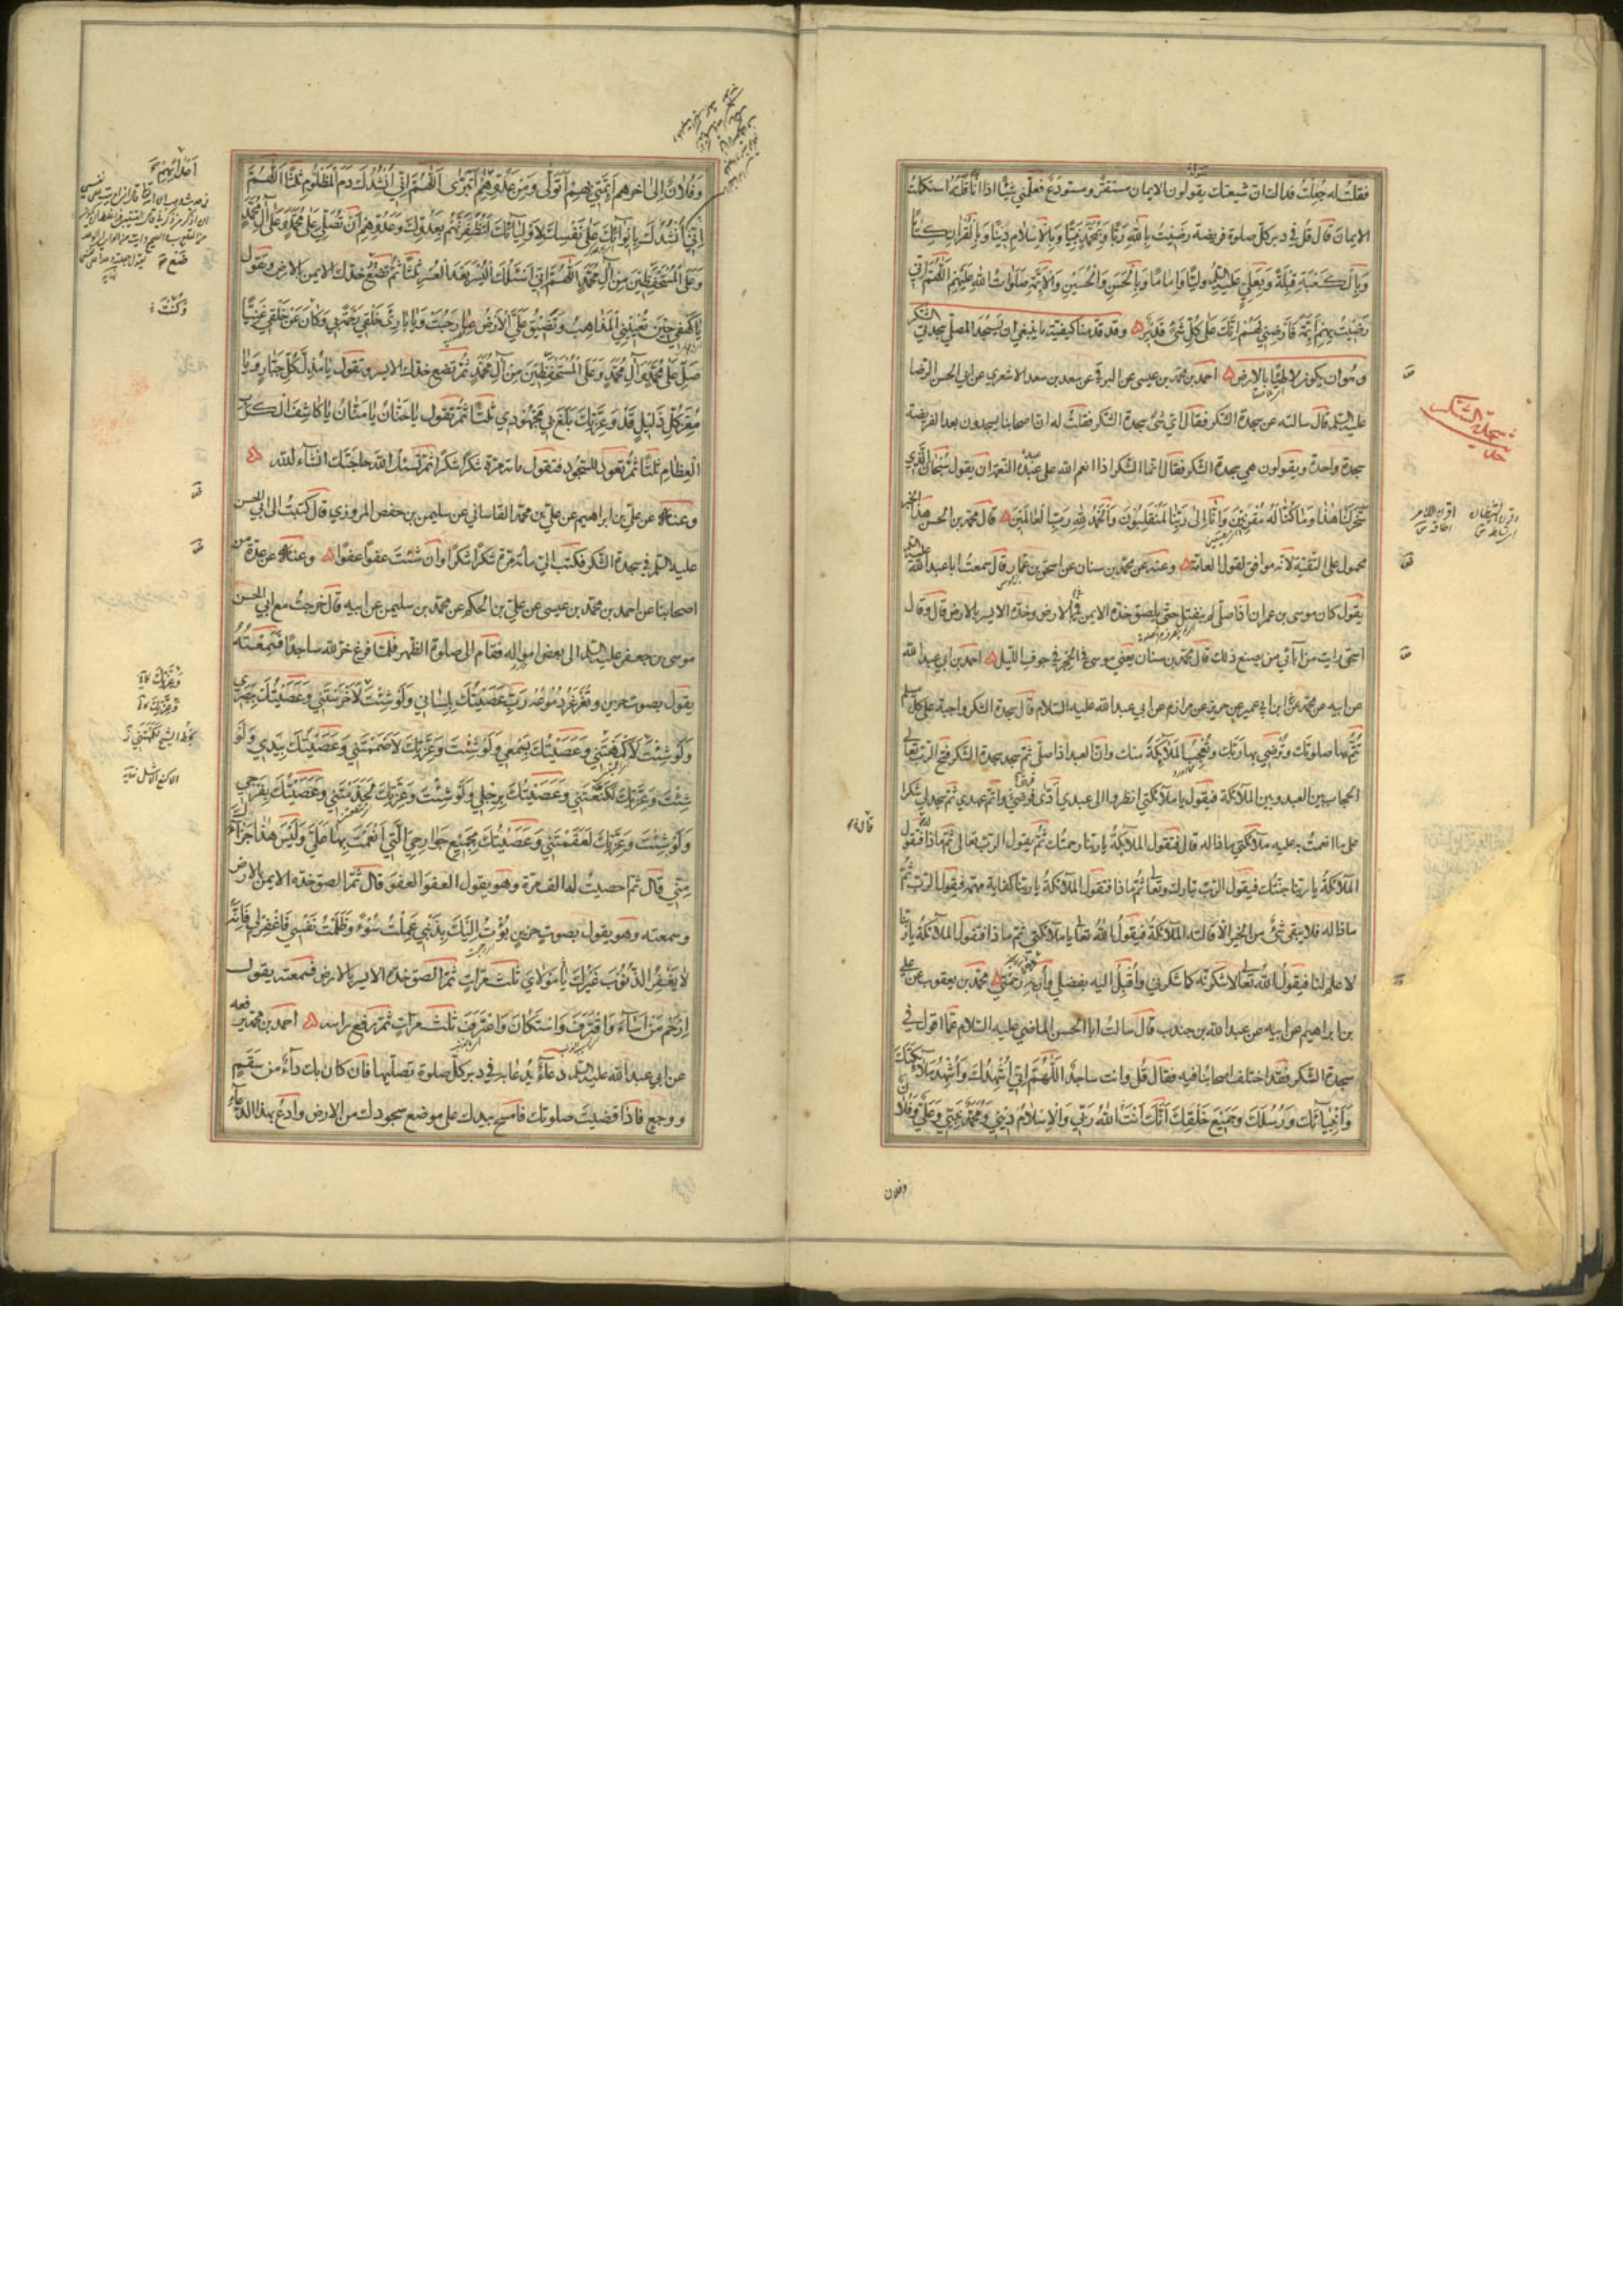 فقلت له جعلت فداك ان شيعتك يقولون الايمان مستقر ومستودع فعلمني شيئا اذا انا قلته استكملت
الايمان قال قل في دبر كل صلوة فريضة رضيت بالله ربا وبمحمد نبيا وبالاسلام دينا وبالقران كتابا
وبالكعبة قبلة وبعلي عليه السلم وليا واماما وبالحسن والحسين والائمة صلوات الله عليهم اللهم اني
رضيت بهم ائمة فارضني لهم انك على كل شئ قدير وقد قدمنا كيفية ما ينبغي ان يسجد المصلي سجدتي الشكر
وهو ان يكون لاطئا بالارض احمد بن محمد بن عيسى عن البرقي عن سعد بن سعد الاشعري عن ابي الحسن الرضا
عليه السلم قال سالته عن سجدة الشكر فقال اي شئ سجدة الشكر فقلت له ان اصحابنا يسجدون بعد الفريضة
سجدة واحدة ويقولون هي سجدة الشكر فقال انما الشكر اذا انعم الله على عبده النعمة ان يقول سبحان الذي
سخر لنا هذا وما كنا له مقرنين وانا الى ربنا لمنقلبون والحمد لله رب العالمين قال محمد بن الحسن هذا الخبر
محمول على التقية لانه موافق لقول العامة وعنه عن محمد بن سنان عن اسحق بن عمار قال سمعت ابا عبد الله عليه السلم
يقول كان موسى بن عمران اذا صلى لم ينفتل حتى يلصق خده الايمن بالارض وخده الايسر بالارض قال وقال
اسحق رايت من آبائي من يصنع ذلك قال محمد بن سنان يعني موسى في الحجر في جوف الليل احمد بن ابي عبد الله
عن ابيه عن محمد بن ابي عمير عن حريز عن مرازم عن ابي عبد الله عليه السلام قال سجدة الشكر واجبة على كل مسلم
تتم بها صلوتك وترضي بها ربك وتعجب الملائكة منك وان العبد اذا صلى ثم سجد سجدة الشكر فتح الرب تعالى
الحجاب بين العبد وبين الملائكة فيقول يا ملائكتي انظروا الى عبدي ادى فرضي واتم عهدي ثم سجد لي شكرا
على ما انعمت به عليه ملائكتي ماذا له قال فتقول الملائكة يا ربنا رحمتك ثم يقول الرب تعالى ثم ماذا له فتقول
الملائكة يا ربنا جنتك فيقول الرب تبارك وتعالى ثم ماذا فتقول الملائكة يا ربنا كفاية مهمه فيقول الرب ثم
ماذا له فلا يبقى شئ من الخير الا قالته الملائكة فيقول الله تعالى يا ملائكتي ثم ماذا فتقول الملائكة يا ربنا
لا علم لنا فيقول الله تعالى لاشكرنه كما شكرني واقبل اليه بفضلي واريه رحمتي محمد بن يعقوب عن علي
بن ابراهيم عن ابيه عن عبد الله بن جندب قال سالت ابا الحسن الماضي عليه السلام عما اقول في
سجدة الشكر فقد اختلف اصحابنا فيه فقال قل وانت ساجد اللهم اني اشهدك واشهد ملائكتك
وانبيائك ورسلك وجميع خلقك انك انت الله ربي والاسلام ديني ومحمد نبيي وعلي وفلان
وفلان
سجدة الشكر
وفلان الى اخرهم ائمتي بهم اتولى ومن عدوهم اتبرى اللهم اني انشدك دم المظلوم ثلثا اللهم
اني انشدك بايوائك على نفسك لاوليائك لتظفرنهم بعدوك وعدوهم ان تصلي على محمد وعلى آل محمد
وعلى المستحفظين من آل محمد اللهم اني اسئلك اليسر بعد العسر ثلثا ثم تضع خدك الايمن بالارض وتقول
يا كهفي حين تعييني المذاهب وتضيق علي الارض بما رحبت ويا بارئ خلقي رحمة بي وكان عن خلقي غنيا
صل على محمد وآل محمد وعلى المستحفظين من آل محمد ثم تضع خدك الايسر وتقول يا مذل كل جبار ويا
معز كل ذليل قد وعزتك بلغ بي مجهودي ثلثا ثم تقول يا حنان يا منان يا كاشف الكرب
العظام ثلثا ثم تعود للسجود فتقول مائة مرة شكرا شكرا ثم تسئل الله حاجتك انشاء الله
وعنه عن علي بن ابراهيم عن علي بن محمد القاساني عن سليمن بن حفص المروزي قال كتبت الى ابي الحسن
عليه السلم في سجدة الشكر فكتب الي مائة مرة شكرا شكرا وان شئت عفوا عفوا وعنه عن عدة من
اصحابنا عن احمد بن محمد بن عيسى عن علي بن الحكم عن محمد بن سليمن عن ابيه قال خرجت مع ابي الحسن
موسى بن جعفر عليه السلم الى بعض امواله فقام الى صلوة الظهر فلما فرغ خر لله ساجدا فسمعته
يقول بصوت حزين وتغرغر دموعه رب عصيتك بلساني ولو شئت لاخرستني وعصيتك ببصري
ولو شئت لاكمهتني وعصيتك بسمعي ولو شئت وعزتك لاصممتني وعصيتك بيدي ولو
شئت وعزتك لكنعتني وعصيتك برجلي ولو شئت وعزتك لجذمتني وعصيتك بفرجي
ولو شئت وعزتك لعقمتني وعصيتك بجميع جوارحي التي انعمت بها علي وليس هذا جزاءك
مني قال ثم احصيت له الف مرة وهو يقول العفو العفو قال ثم الصق خده الايمن بالارض
وسمعته وهو يقول بصوت حزين بؤت اليك بذنبي عملت سوء وظلمت نفسي فاغفر لي فانه
لا يغفر الذنوب غيرك يا مولاي ثلث مرات ثم الصق خده الايسر بالارض فسمعته يقول
ارحم من اساء واقترف واستكان واعترف ثلث مرات ثم رفع راسه احمد بن محمد رفعه
عن ابي عبد الله عليه السلم دعاء يدعا به في دبر كل صلوة تصليها فان كان بك داء من سقم
ووجع فاذا قضيت صلوتك فامسح بيدك على موضع سجودك من الارض وادع بهذا الدعاء
وكنت